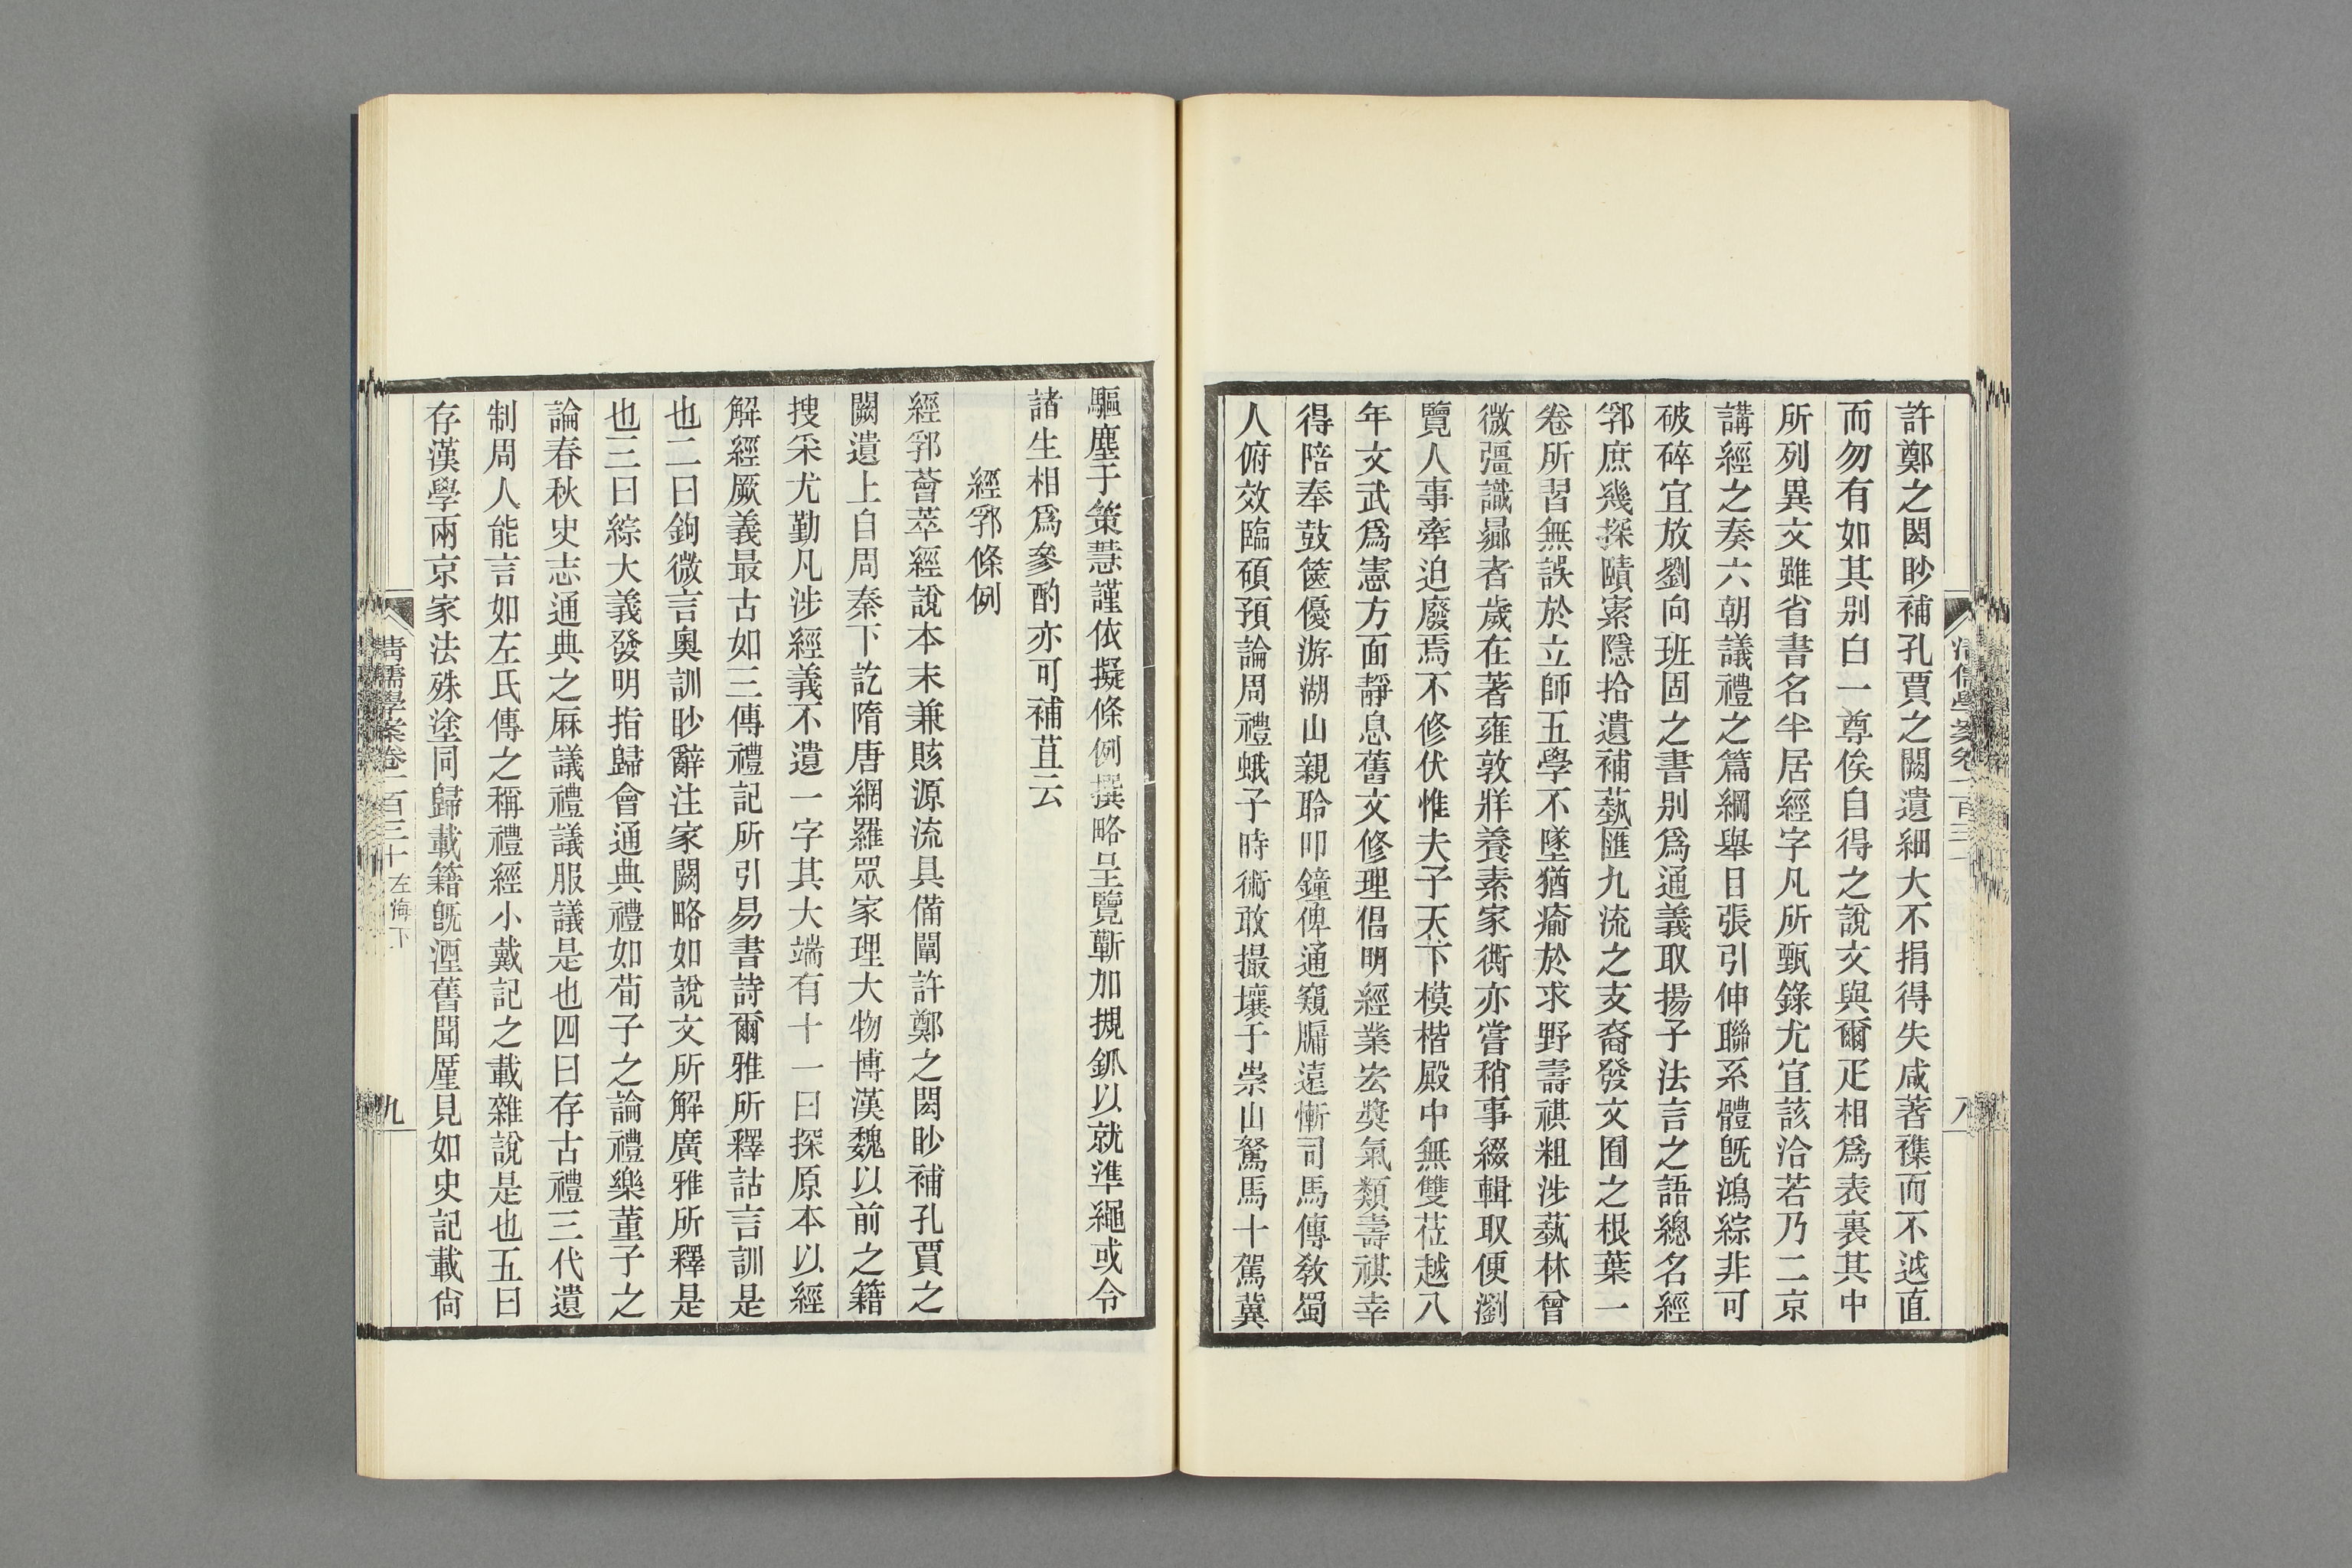 許鄭之閎眇補孔賈之闕遺細大不捐得失咸著襍而不𨒋直
而勿有如其别白一尊俟自得之說文與爾疋相爲表裏其中
所列異文雖省書名半居經字凡所甄錄尤宜該洽若乃二京
講經之奏六朝議禮之篇綱舉目張引伸聯系體旣鴻綜非可
破碎宜放劉向班固之書别爲通義取揚子法言之語總名經
郛庶幾探賾索隱拾遺補蓺匯九流之支裔發文囿之根葉一
卷所習無誤於立師五學不墜猶瘉於求野壽祺粗涉蓺林曾
微彊識曏者歲在著雍敦牂養素家衖亦嘗稍事綴輯取便瀏
覽人事牽迫廢焉不修伏惟夫子天下模楷殿中無雙莅越八
年文武爲憲方面靜息舊文修理倡明經業宏奬氣類壽祺幸
得陪奉鼓篋優游湖山親聆叩鐘俾通窺牖遠慚司馬傳敎蜀
人俯效臨碩預論周禮蛾子時術敢撮壤于崇山駑馬十駕冀
清儒學案卷一百三十
八
驅塵于策彗謹依擬條例撰略呈覽蘄加摫𨥨以就準繩或令
諸生相爲參酌亦可補苴云
經郛條例
經郛薈萃經說本末兼賅源流具備闡許鄭之閎眇補孔賈之
闕遺上自周秦下訖隋唐網羅眾家理大物博漢魏以前之籍
搜采尤勤凡涉經義不遺一字其大端有十一曰探原本以經
解經厥義最古如三傳禮記所引易書詩爾雅所釋詁言訓是
也二曰鉤微言奧訓眇辭注家闕略如說文所解廣雅所釋是
也三曰綜大義發明指歸會通典禮如荀子之論禮樂董子之
論春秋史志通典之厤議禮議服議是也四曰存古禮三代遺
制周人能言如左氏傳之稱禮經小戴記之載雜說是也五曰
存漢學兩京家法殊塗同歸載籍旣湮舊聞廑見如史記載尙
清儒學案卷一百三十 左海下
九